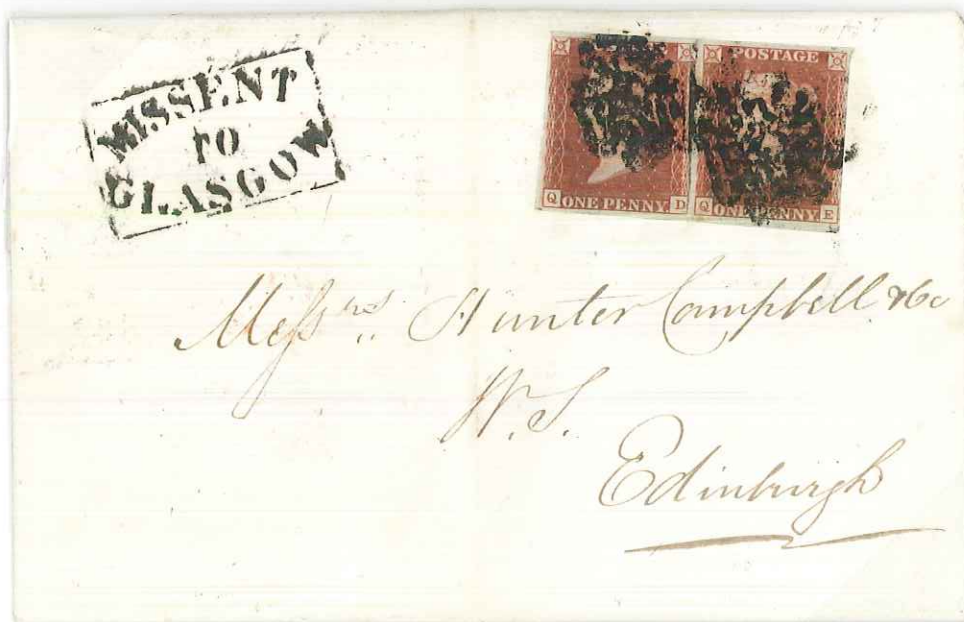 MISSENT
TO
GLASGOW
POSTAGE
Q ONE PENNY D
Q ONE PENNY E
Messrs. Hunter Campbell &Co
W.S.
Edinburgh